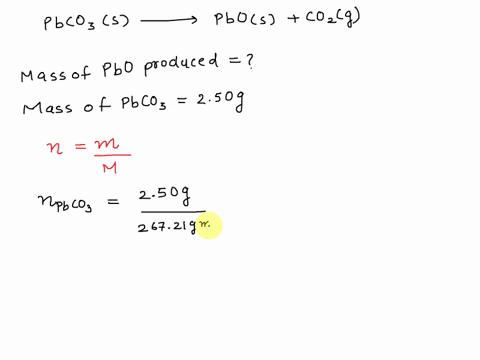 PbCO₃(s) ⟶ PbO(s) + CO₂(g)
Mass of PbO produced = ?
Mass of PbCO₃ = 2.50g
n = m/M
nPbCO₃ = 2.50g
267.21g